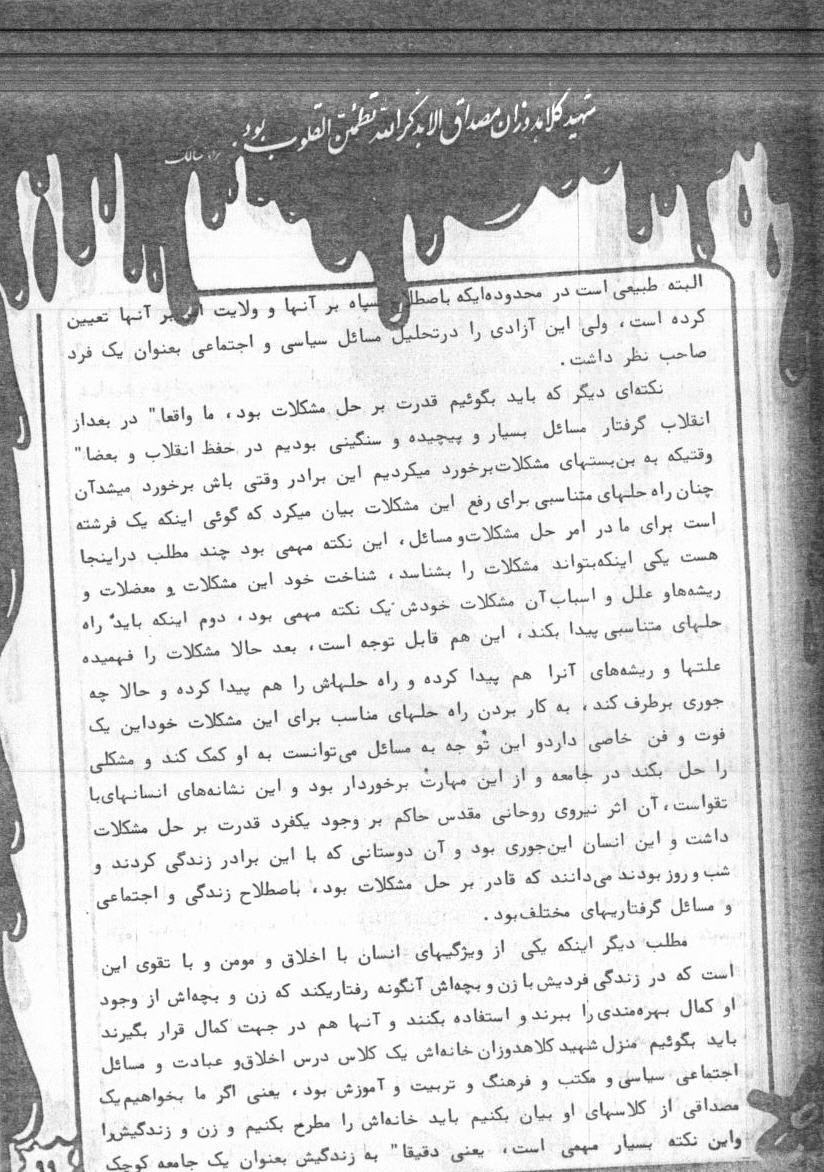 شهید کلاهدوزان مصداق الا بذکر الله تطمئن القلوب بود.
سالک
البته طبیعی است در محدوده‌ایکه باصطلاح سپاه بر آنها و ولایت بر آنها تعیین
کرده است، ولی این آزادی را درتحلیل مسائل سیاسی و اجتماعی بعنوان یک فرد
صاحب نظر داشت.
نکته‌ای دیگر که باید بگوئیم قدرت بر حل مشکلات بود، ما واقعا" در بعداز
انقلاب گرفتار مسائل بسیار و پیچیده و سنگینی بودیم در حفظ انقلاب و بعضا"
وقتیکه به بن‌بستهای مشکلات‌برخورد میکردیم این برادر وقتی باش برخورد میشدآن
چنان راه حلهای متناسبی برای رفع این مشکلات بیان میکرد که گوئی اینکه یک فرشته
است برای ما در امر حل مشکلات‌و مسائل، این نکته مهمی بود چند مطلب دراینجا
هست یکی اینکه‌بتواند مشکلات را بشناسد، شناخت خود این مشکلات و معضلات و
ریشه‌هاو علل و اسباب‌آن مشکلات خودش یک نکته مهمی بود، دوم اینکه باید راه
حلهای متناسبی پیدا بکند، این هم قابل توجه است، بعد حالا مشکلات را فهمیده
علتها و ریشه‌های آنرا هم پیدا کرده و راه حلهاش را هم پیدا کرده و حالا چه
جوری برطرف کند، به کار بردن راه حلهای مناسب برای این مشکلات خوداین یک
فوت و فن خاصی داردو این تو جه به مسائل می‌توانست به او کمک کند و مشکلی
را حل بکند در جامعه و از این مهارت برخوردار بود و این نشانه‌های انسانهای‌با
تقواست، آن اثر نیروی روحانی مقدس حاکم بر وجود یکفرد قدرت بر حل مشکلات
داشت و این انسان این‌جوری بود و آن دوستانی که با این برادر زندگی کردند و
شب و روز بودند می‌دانند که قادر بر حل مشکلات بود، باصطلاح زندگی و اجتماعی
و مسائل گرفتاریهای مختلف‌بود.
مطلب دیگر اینکه یکی از ویژگیهای انسان با اخلاق و مومن و با تقوی این
است که در زندگی فردیش با زن و بچه‌اش آنگونه رفتاریکند که زن و بچه‌اش از وجود
او کمال بهره‌مندی را ببرند و استفاده بکنند و آنها هم در جهت کمال قرار بگیرند
باید بگوئیم منزل شهید کلاهدوزان خانه‌اش یک کلاس درس اخلاق‌و عبادت و مسائل
اجتماعی سیاسی و مکتب و فرهنگ و تربیت و آموزش بود، یعنی اگر ما بخواهیم‌یک
مصداقی از کلاسهای او بیان بکنیم باید خانه‌اش را مطرح بکنیم و زن و زندگیش‌را
واین نکته بسیار مهمی است، یعنی دقیقا" به زندگیش بعنوان یک جامعه کوچک
۹۹